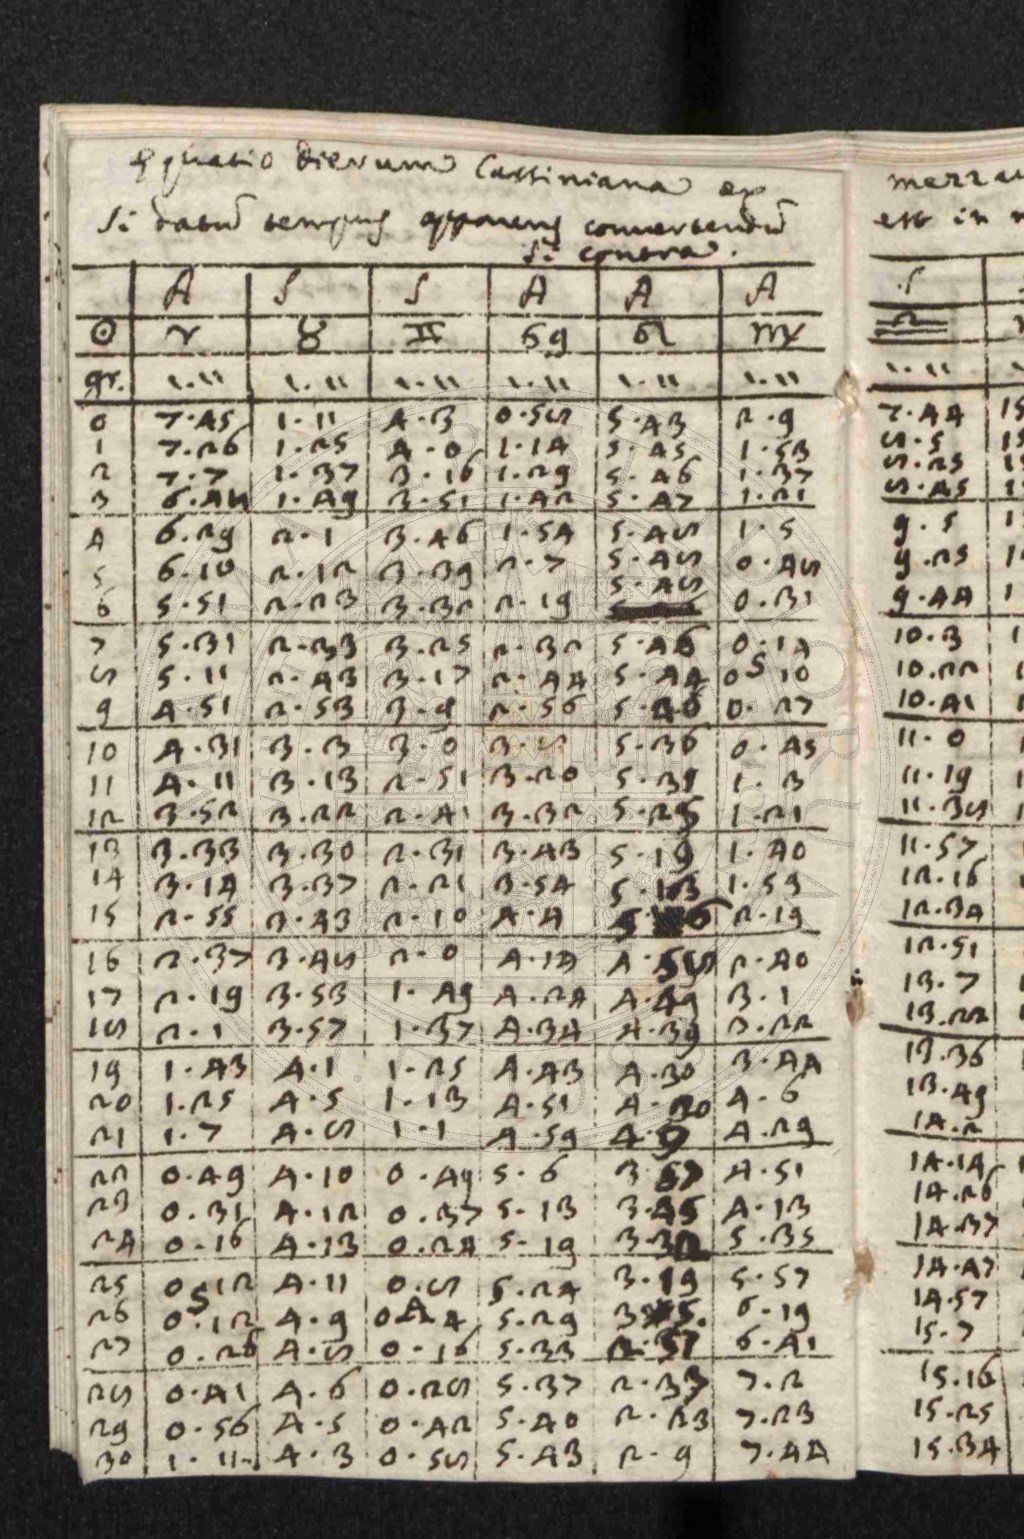 Equatio dierum Cassiniana ex
Si datum tempus apparens convertendum
Si contra.
A S S A A A S
☉ ♈ ♉ ♊ ♋ ♌ ♍ ♎
gr. ' '' ' '' ' '' ' '' ' '' ' '' ' ''
0 7.45 1.11 4.3 0.58 5.43 2.9 7.44
1 7.26 1.25 4.0 1.14 5.45 1.53 8.5
2 7.7 1.37 3.16 1.29 5.46 1.37 8.25
3 6.48 1.49 3.51 1.42 5.47 1.21 8.45
4 6.29 2.1 3.46 1.54 5.48 1.5 9.5
5 6.10 2.12 3.39 2.7 5.48 0.48 9.25
6 5.51 2.23 3.32 2.19 5.48 0.31 9.44
7 5.31 2.33 3.25 2.32 5.46 0.14 10.3
8 5.11 2.43 3.17 2.44 5.44 0 S 10 10.22
9 4.51 2.53 3.9 2.56 5.40 0.27 10.41
10 4.31 3.3 3.0 3.8 5.36 0.45 11.0
11 4.11 3.13 2.51 3.20 5.31 1.3 11.19
12 3.52 3.22 2.41 3.32 5.25 1.21 11.38
13 3.33 3.30 2.31 3.43 5.19 1.40 11.57
14 3.14 3.37 2.21 3.54 5.13 1.59 12.16
15 2.55 3.43 2.10 4.4 5.6 2.19 12.34
16 2.37 3.48 2.0 4.14 4.58 2.40 12.51
17 2.19 3.53 1.49 4.24 4.49 3.1 13.7
18 2.1 3.57 1.37 4.34 4.39 3.22 13.22
19 1.43 4.1 1.25 4.43 4.30 3.44 13.36
20 1.25 4.5 1.13 4.51 4.20 4.6 13.49
21 1.7 4.8 1.1 4.59 4.9 4.29 14.2
22 0.49 4.10 0.49 5.6 3.57 4.51 14.14
23 0.31 4.12 0.37 5.13 3.45 4.13 14.26
24 0.16 4.13 0.24 5.19 3.32 5.35 14.37
25 0.12 4.11 0.8 5.24 3.19 5.57 14.47
26 0 S 12 4.9 0 A 4 5.29 3.5 6.19 14.57
27 0.26 4.8 0.16 5.33 2.51 6.41 15.7
28 0.41 4.6 0.28 5.37 2.37 7.2 15.16
29 0.56 4.5 0.42 5.40 2.23 7.23 15.25
30 1.11 4.3 0.58 5.43 2.9 7.44 15.34
est in